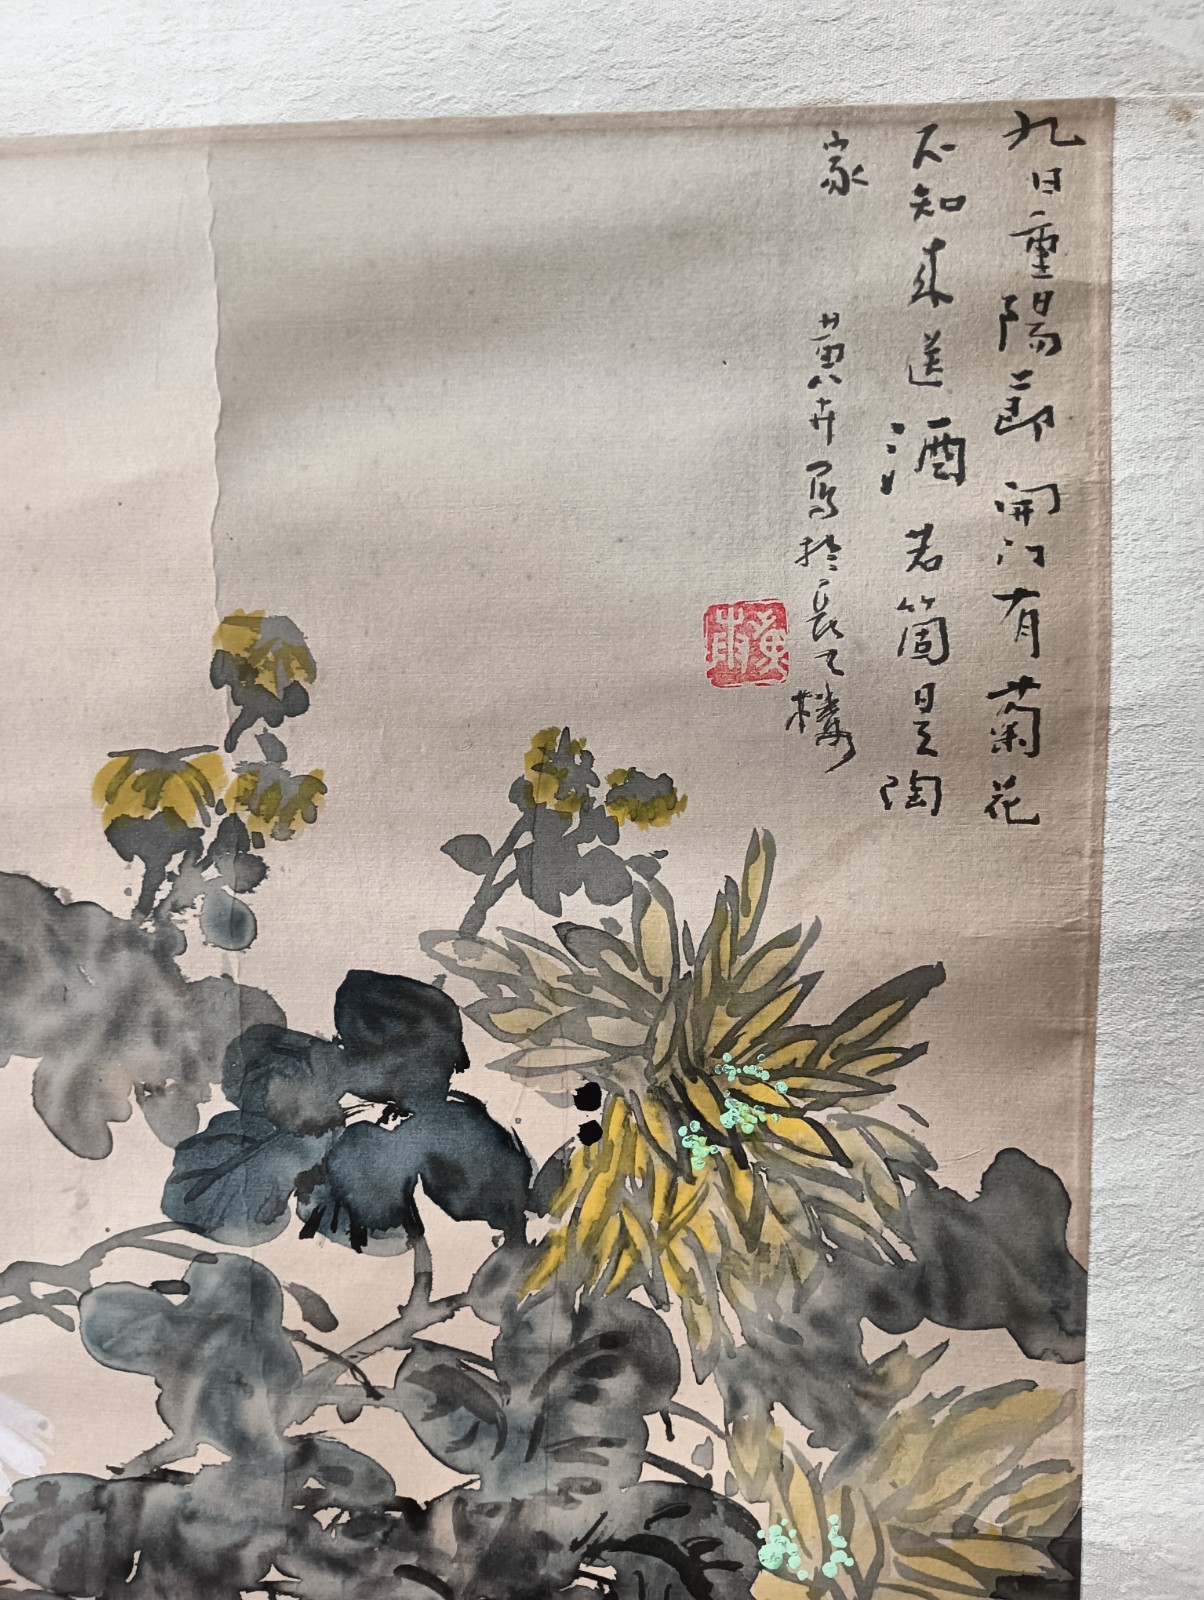 九日重陽節開门有菊花
不知来送酒若箇是陶
家
黄八卉寫於長天樓